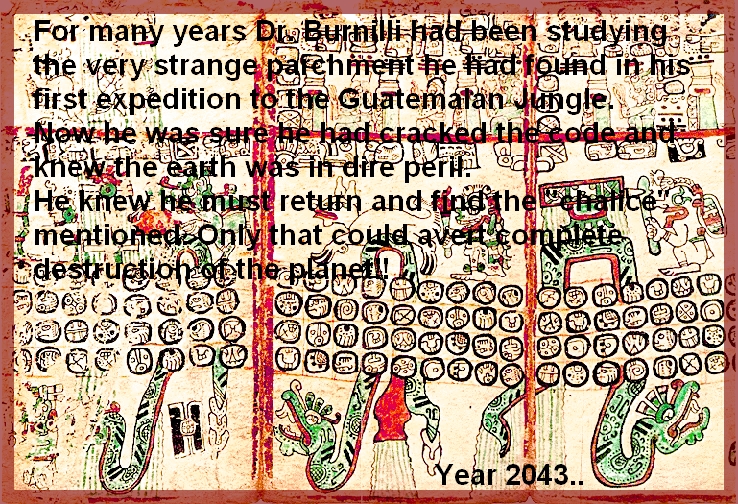 For many years Dr. Burnilli had been studying
the very strange parchment he had found in his
first expedition to the Guatemalan Jungle.
Now he was sure he had cracked the code and
knew the earth was in dire peril.
He knew he must return and find the "chalice"
mentioned. Only that could avert complete
destruction of the planet!!
Year 2043..